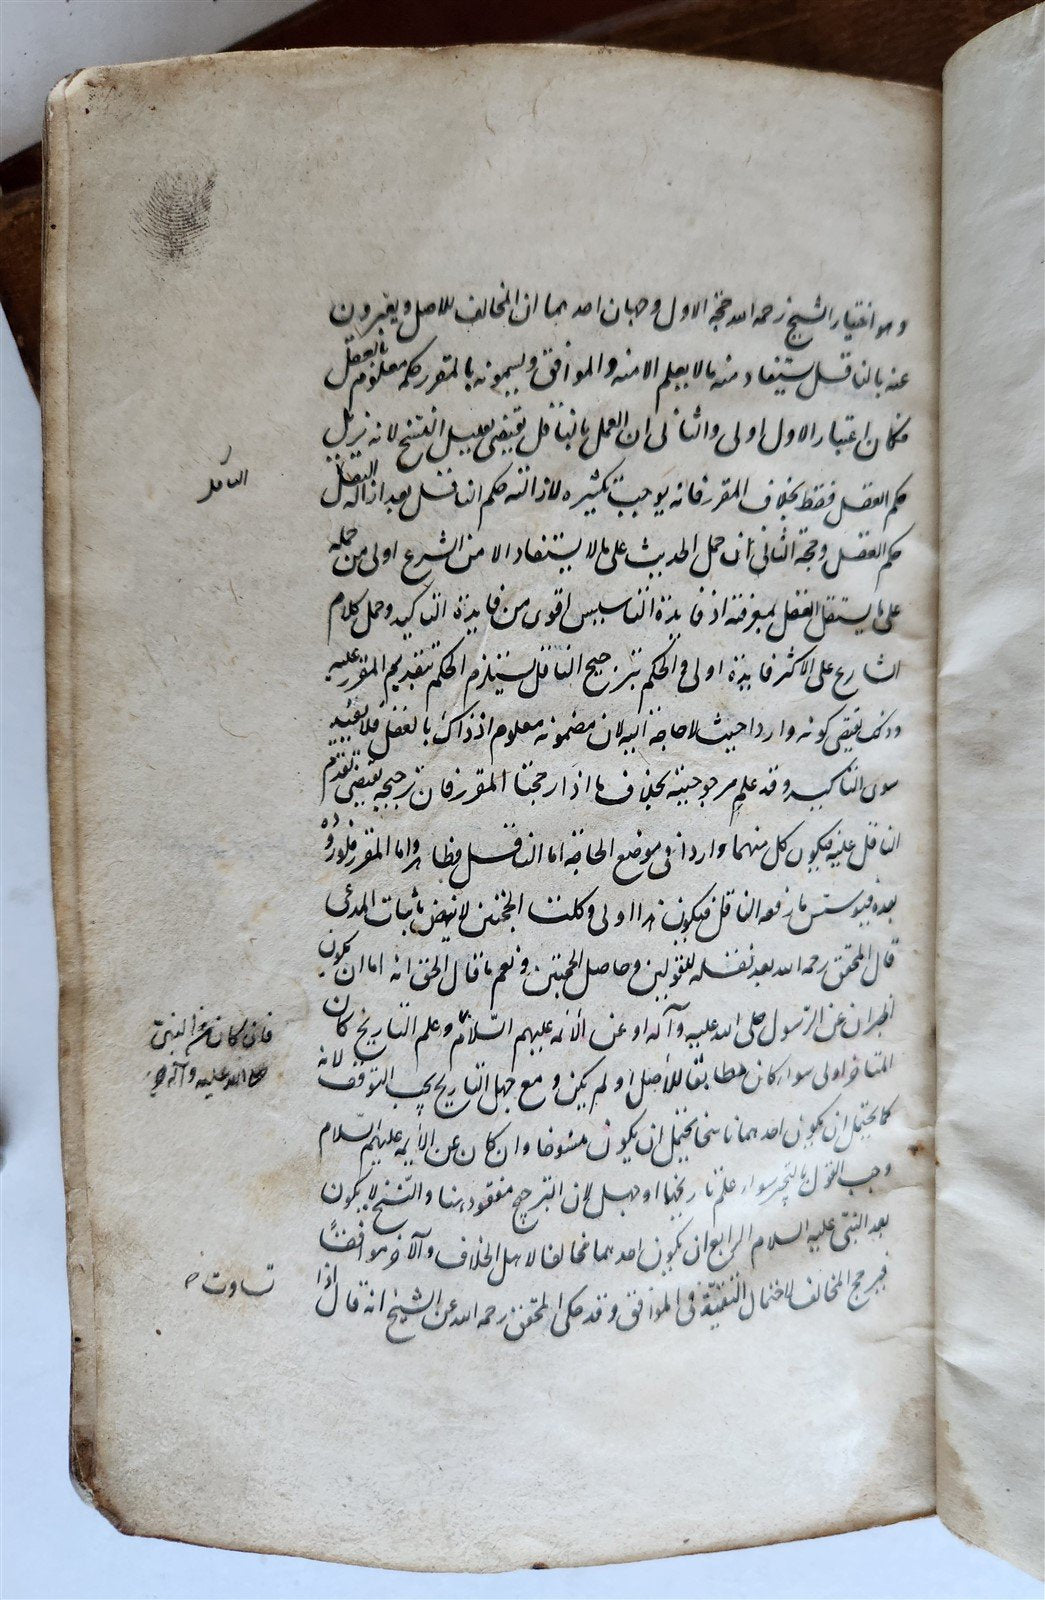 وهو اختيار الشيخ رحمه الله حجة الاول وجهان احدهما ان المخالف للاصل ويعبرون
عنه بالناقل يستفاد منه ما لا يعلم الا منه والموافق ويسمونه بالمقرر حكمه معلوم بالعقل
فكان اعتبار الاول اولى والثاني ان العمل بالناقل يقتضي تقليل النسخ لانه يزيل
حكم العقل فقط بخلاف المقرر فانه يوجب تكثيره لازالته حكم الناقل بعد ازالة الناقل
حكم العقل وحجة الثاني ان حمل الحديث على ما لا يستفاد الا من الشرع اولى من حمله
على ما يستقل العقل بمعرفته اذ فايدة التاسيس اقوى من فايدة التاكيد وحمل كلام
الشارع على الاكثر فايدة اولى والحكم بترجيح الناقل يستلزم الحكم بتقديم المقرر عليه
وذلك يقتضي كونه واردا حيث لا حاجة اليه لان مضمونه معلوم اذ ذاك بالعقل فلا يفيد
سوى التاكيد وقد علم مرجوحيته بخلاف ما اذا رجحنا المقرر فان ترجيحه يقتضي تقديم
الناقل عليه فيكون كل منهما واردا في موضع الحاجة اما الناقل فظاهر واما المقرر فلوروده
بعده فيوسس ما رفعه الناقل فيكون هذا اولى وكلتا الحجتين لا ينهض باثبات المدعى
قال المحقق رحمه الله بعد نقله للقولين وحاصل الحجتين ونعم ما قال الحق انه اما ان يكون
الخبران عن الرسول صلى الله عليه وآله او عن الأئمة عليهم السّلام وعلم التاريخ كان
المتاخر اولى سواء كان مطابقا للأصل او لم يكن ومع جهل التاريخ يجب التوقف لانه
كما يحتمل ان يكون احدهما ناسخا يحتمل ان يكون منسوخا وان كان عن الأئمة عليهم السلام
وجب القول بالتخيير سواء علم تاريخهما او جهل لان الترجيح مفقود هنا والنّسخ لا يكون
بعد النبىّ عليه السلام الرابع ان يكون احدهما مخالفا لاهل الخلاف والآخر موافقا
فيرجح المخالف لاحتمال التقيّة في الموافق وقد حكى المحقق رحمه الله عن الشيخ انه قال اذا
الناقل
فان كان عن النبىّ
صلى الله عليه وآله
تساوت